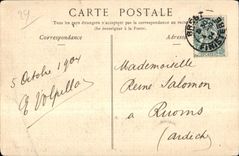 29
CARTE POSTALE
Tous les pays étrangers n'acceptent pas la correspondance au recto
(Se renseigner à la Poste).
Correspondance
Adresse
BREST
FINIST
5 Octobre 1904
Volpella
Mademoiselle
Reine Salomon
à Ruoms
(Ardèch)